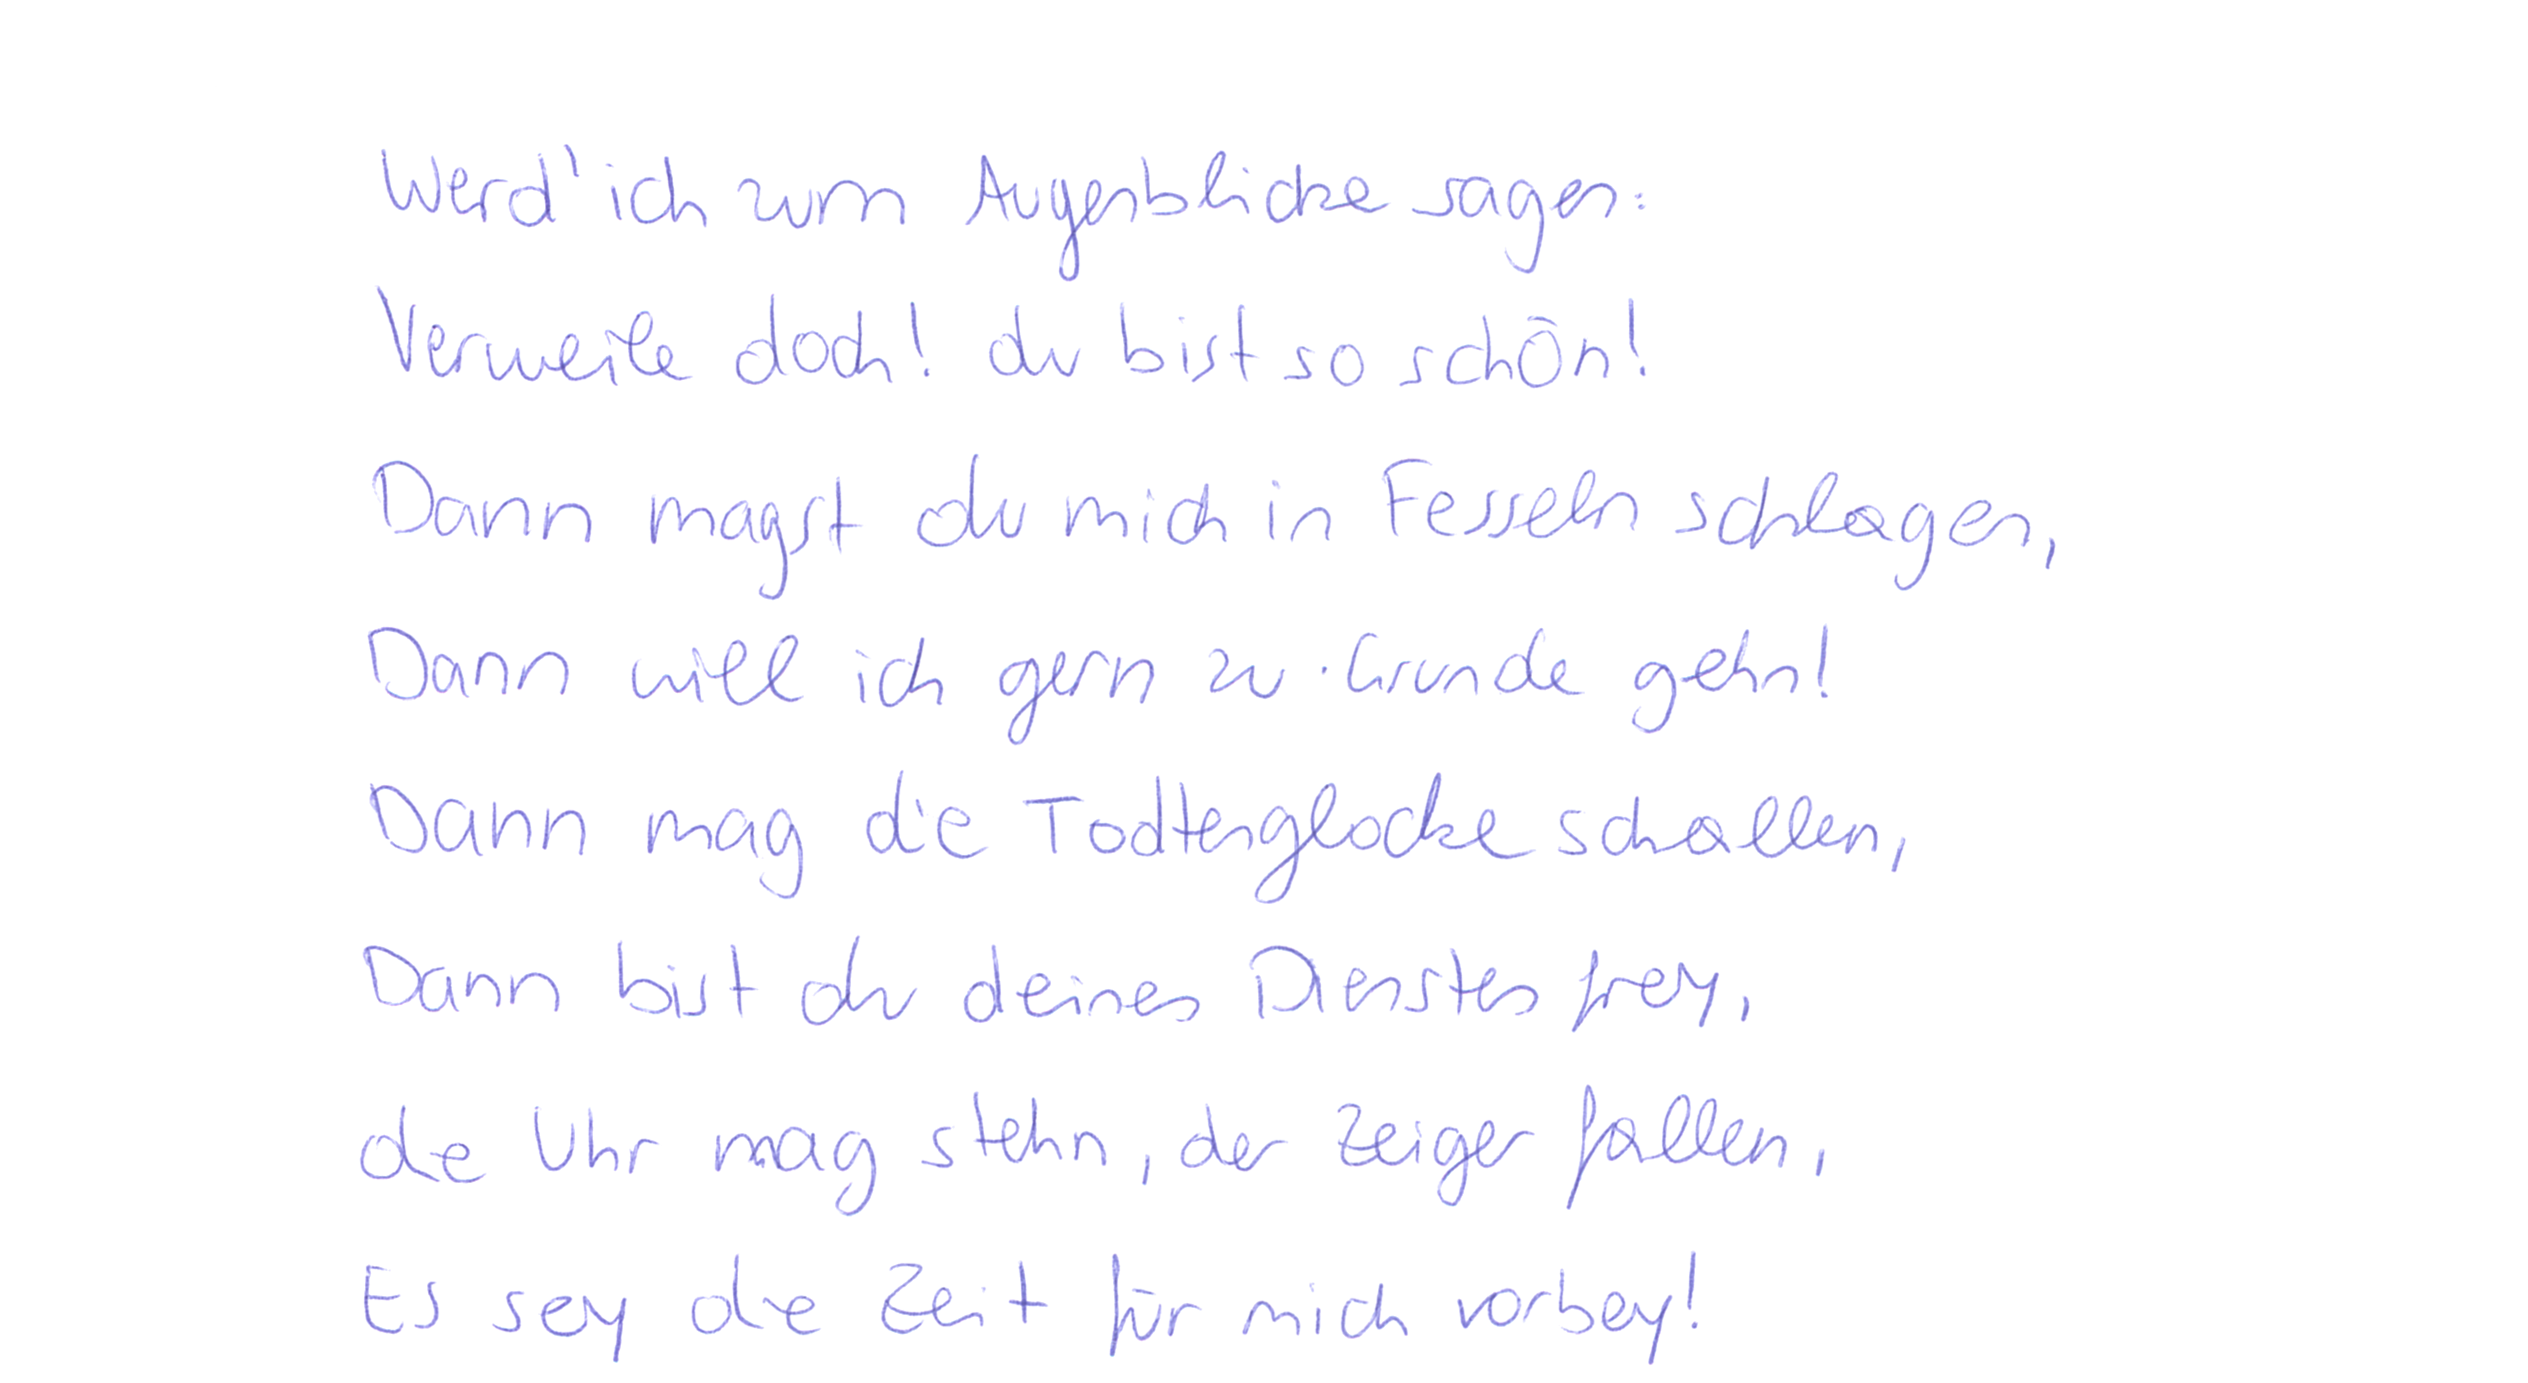 Werd' ich zum Augenblicke sagen:
Verweile doch! du bist so schön!
Dann magst du mich in Fesseln schlagen,
Dann will ich gern zu Grunde gehn!
Dann mag die Todtenglocke schallen,
Dann bist du deines Dienstes frey,
die Uhr mag stehn, der Zeiger fallen,
Es sey die Zeit für mich vorbey!